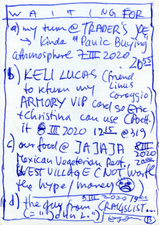 WAITING FOR
a) my turn @ TRADER'S JOE
↳ kinda "Panic Buying
athmosphere 7 III 2020
20
b) KELI LUCAS (friend
Linus
to return my Coreggio
ARMORY VIP card so Eric
+ Christina can use
it 8 III 2020 1215 @ 319
c) our food @ JAJAJA
Mexican Vegeterian Rest.
WEST VILLAGE (NOT worth
the hype / money)
d) the guy from CRAIGSLIST...
(= "John L."